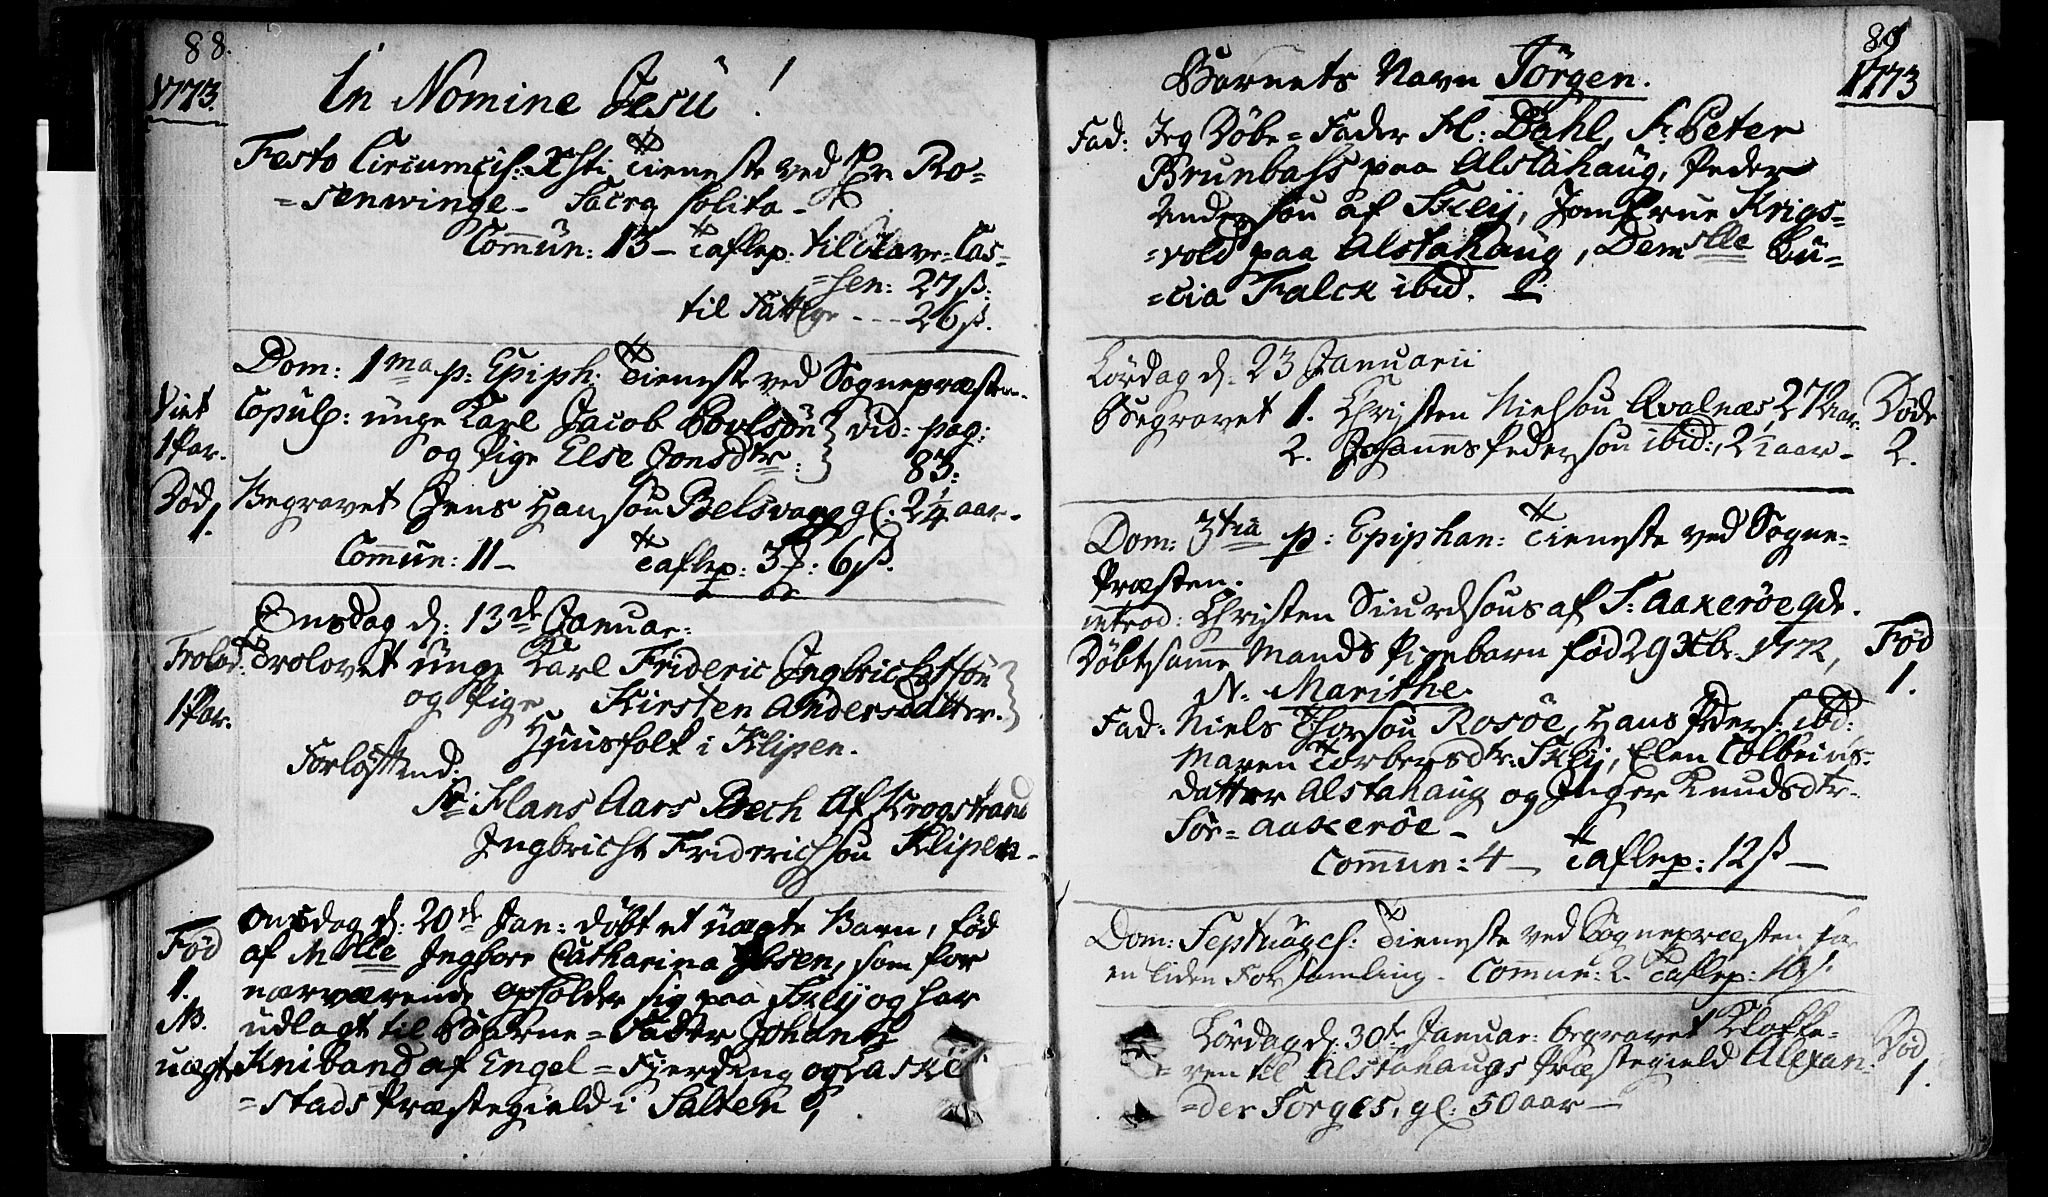 88.
1773
In Nomine Jesu!
Festo Circumcis: Xsti Tieneste ved Hr Ro=
=senwinge - Sacra solita -
Commun: 13 - Taflep: til Slave=Cas=
=sen: 27 ß:
til Fattige --- 26 ß.
Dom: 1ma p: Epiph: Tieneste ved Sognepræsten.
Viet
1 Par.
Copul: unge Karl Jacob Povlsøn } vid: pag:
og Pige Else Jonsdtr: } 83:
Død
1.
Begravet Jens Hansøn Belsvaag gl. 2 1/4 aar.
Commun: 11 - Taflep: 3 : 6 ß.
Onsdag d: 13de Januar:
Trolov:
1 Par.
Trolovet unge Karl Frideric Ingbrichtsøn
og Pige Kirsten Andersdatter.
Huusfolk i Klipen.
Forløftmd:
Sr: Hans Aars Bech af Krogstrand
Ingbricht Friderichsøn Klipen -
Fød
1.
NB.
uægte
Onsdag d: 20de Jan: døbt et uægte Barn, fød
af Mslle Ingbore Catharina Ibsen, som for
nærværende opholder sig paa Skeij og har
udlagt til Barne=Fader Johan
Kniband af Engel=Fierding og Laskie
=stads Præstegield i Salten
89
1773
Barnets Navn Jörgen.
Fad: Jeg Döbe=Fader Hl: Dahl, Sr. Peter
Brunbass paa Alstahaug, Peder
Andersøn af Skeij, Jomfrue Krigs=
=vold paa Alstahaug, Demslle Lu=
=cia Falck ibid.
Lördag d: 23 Januarii
Begravet 1. Christen Nielsøn Qvalnæs, 27 aar.
Døde
2.
2. Johannes Pedersøn ibid:, 2 1/2 aar -
Dom: 3tia p: Epiphan: Tieneste ved Sogne=
Præsten.
introd: Christen Siurdsøns af S: Aakerøe qde.
Döbt samme Mands Pigebarn fød 29 Xbr. 1772,
Fød
1.
N. Marithe.
Fad: Niels Thorsøn Rosøe, Hans Peders: ibd:
Maren Torbersdtr: Skeij, Elen Colbeins=
datter Alstahaug og Inger Knudsdtr.
Sör=Aakerøe -
Commun: 4 - Taflep: 12 ß -
Dom: Septuages: Tieneste ved Sognepræsten for
en liden Forsamling - Commun: 2. Taflep: 10 ß.
Lördag d: 30te Januar: begravet Klokke=
=ren til Alstahaugs Præstegield Alexan=
Død
1.
=der Torges, gl: 50 aar -